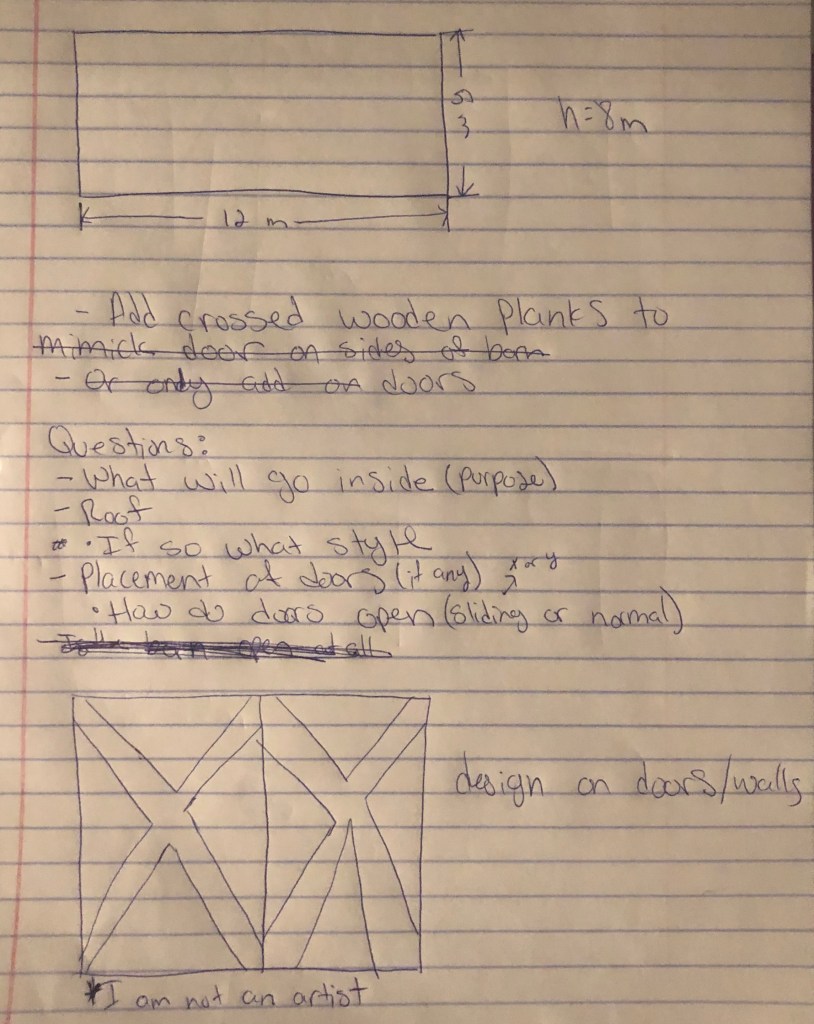 5 m
h=8m
12 m
- Add crossed wooden planks to
mimick door on sides of barn
- Or only add on doors
Questions:
- What will go inside (purpose)
- Roof
• If so what style
- Placement of doors (if any) x or y
• How do doors open (sliding or normal)
barn open at all
design on doors/walls
*I am not an artist